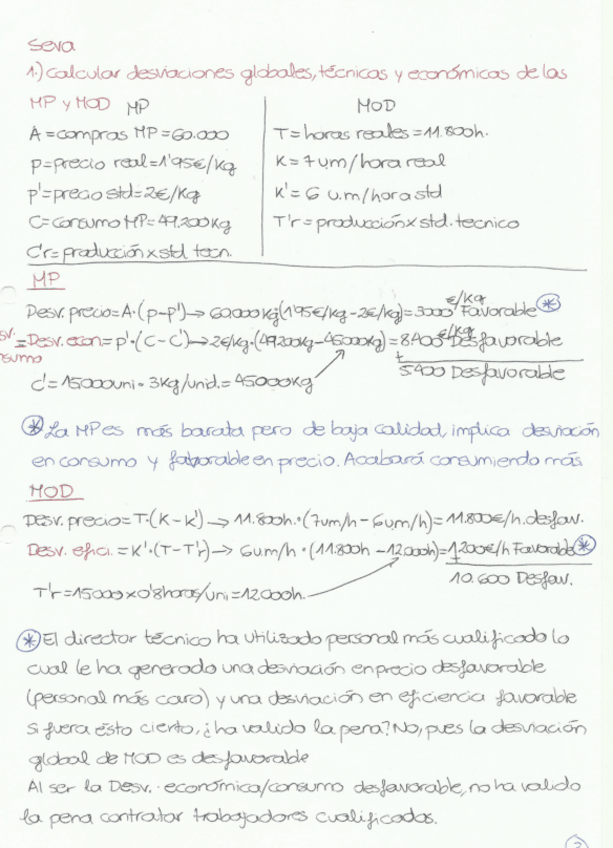 Seva
1.) Calcular desviaciones globales, técnicas y económicas de las
MP y MOD
MP
A = compras MP = 60.000
p = precio real = 1'95€/kg
p' = precio std = 2€/kg
C = consumo MP = 49.200 kg
C'r = producción x std tecn.
MOD
T = horas reales = 11.800h.
K = 7 um/hora real
K' = 6 u.m/hora std
T'r = producción x std. tecnico
MP
Desv. precio = A·(p-p') → 60000kg(1'95€/kg-2€/kg) = 3000 €/kg Favorable *
= Desv. econ = p'·(C-C') → 2€/kg·(49200kg-45000kg) = 8400 €/kg Desfavorable
sumo
5400 Desfavorable
C' = 15000uni · 3kg/unid. = 45000kg
* La MP es más barata pero de baja calidad, implica desviación
en consumo y favorable en precio. Acabará consumiendo más
MOD
Desv. precio = T·(K-K') → 11.800h.·(7um/h-6um/h) = 11.800€/h. desfav.
Desv. efici. = K'·(T-T'r) → 6um/h·(11.800h-12000h) = 1200€/h Favorable *
10.600 Desfav.
T'r = 15000 x 0'8horas/uni = 12000h.
* El director técnico ha utilizado personal más cualificado lo
cual le ha generado una desviación en precio desfavorable
(personal más caro) y una desviación en eficiencia favorable
Si fuera ésto cierto, ¿ha valido la pena? No, pues la desviación
global de MOD es desfavorable
Al ser la Desv. económica/consumo desfavorable, no ha valido
la pena contratar trabajadores cualificados.